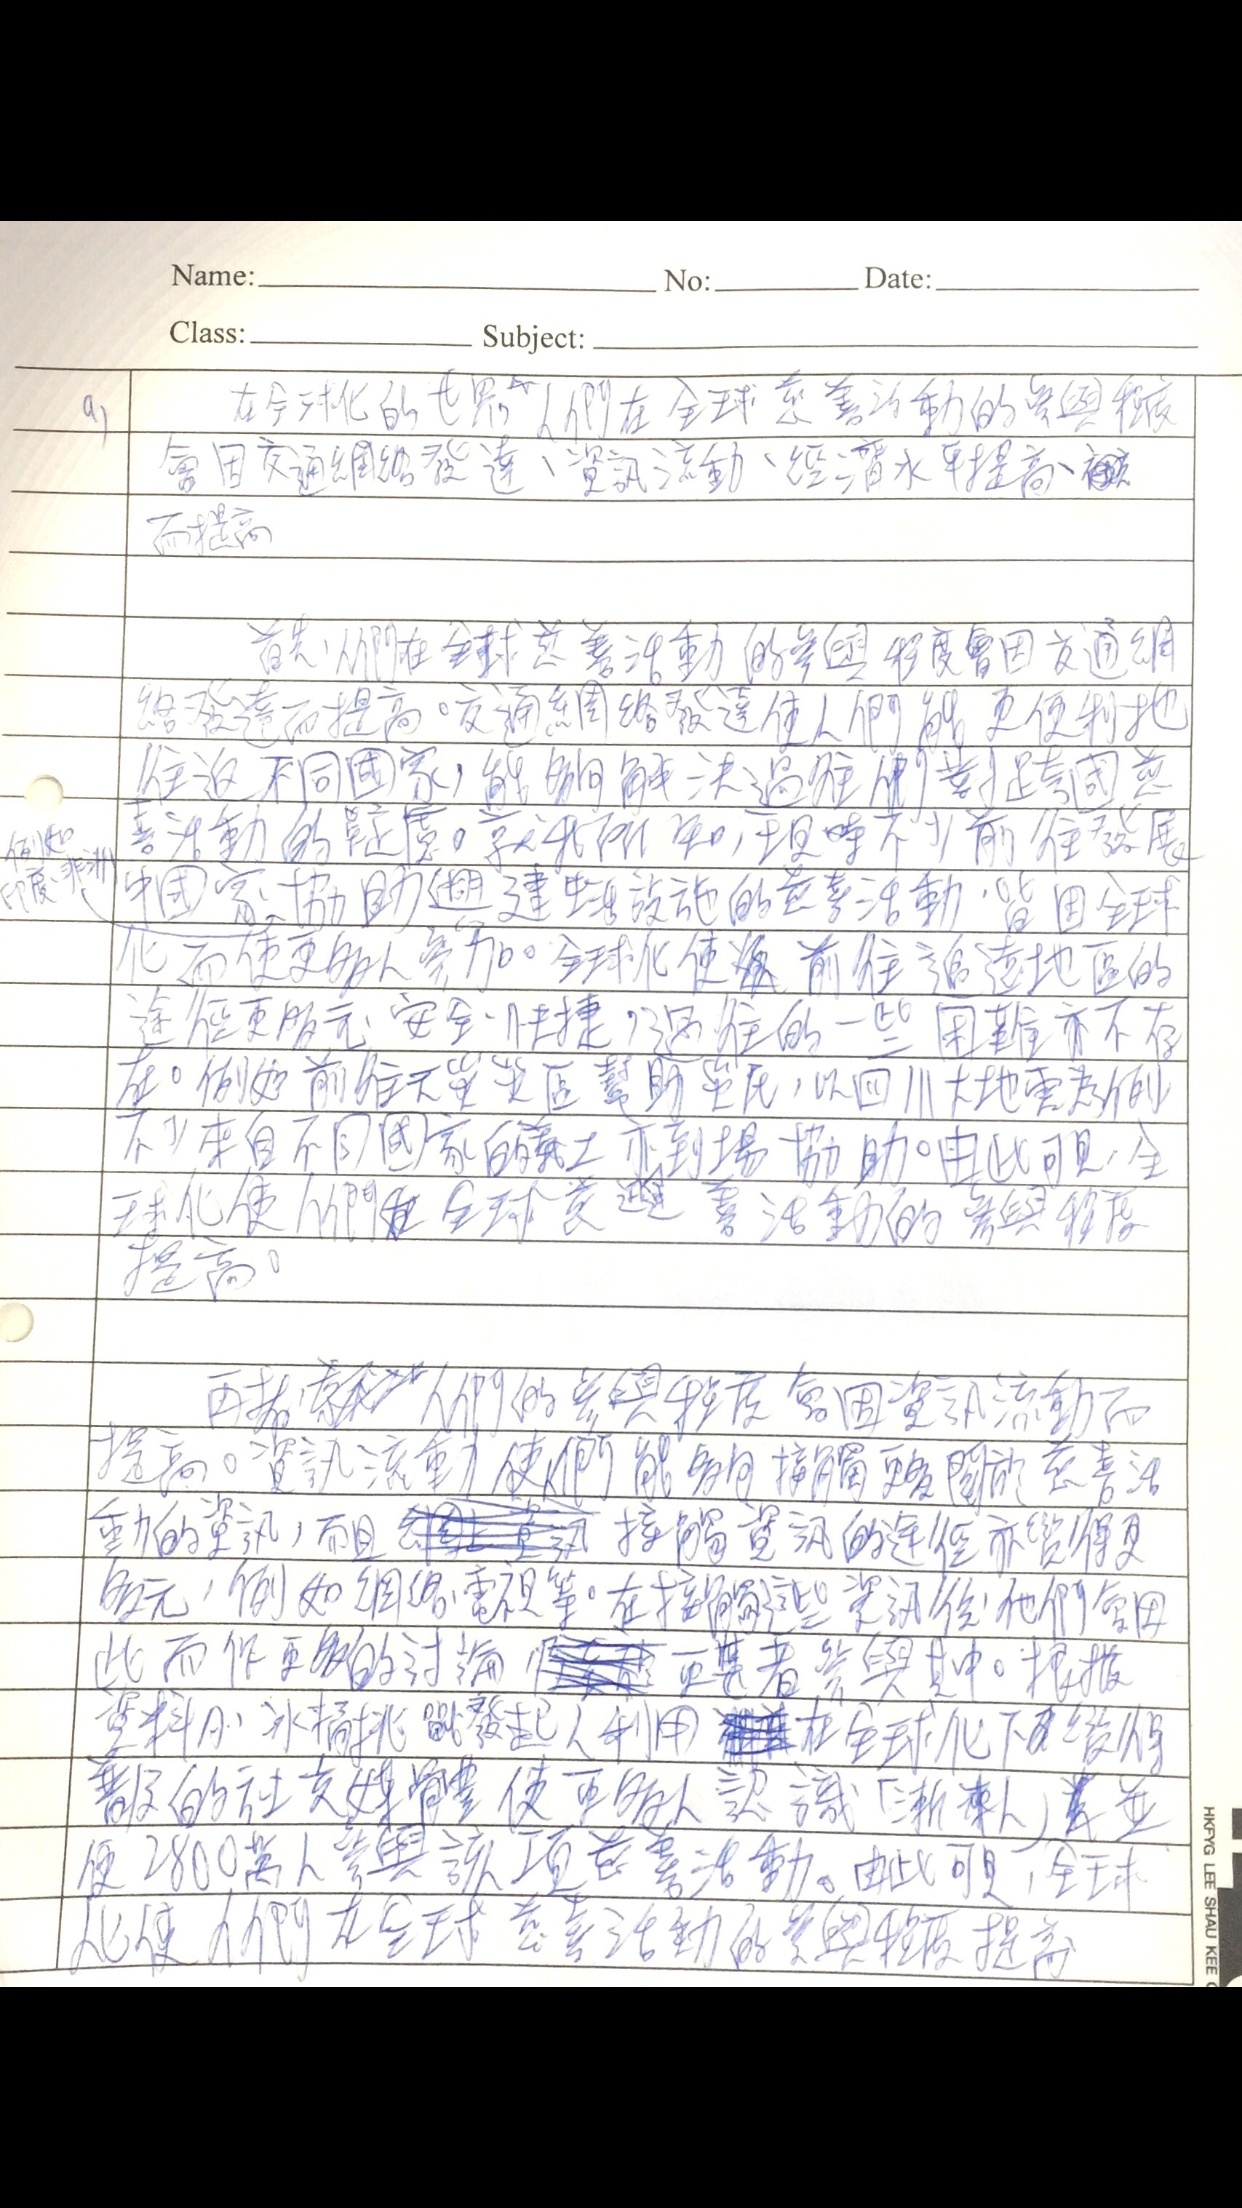 Name: No: Date:
Class: Subject:
a) 在全球化的世界中人們在全球慈善活動的參與程度
會因交通網絡發達、資訊流動、經濟水平提高、
而提高
首先，人們在全球慈善活動的參與程度會因交通網
絡發達而提高。交通網絡發達使人們能更便利地
往返不同國家，能夠解決過往他們對跨國慈
善活動的疑慮。就我所知，現時不少前往發展
例如
印度、非洲
中國家協助興建生活設施的慈善活動，皆因全球
化而使更多人參加。全球化使 前往追遠地區的
途徑更多元、安全、快捷，過往的一些困難亦不存
在。例如前往天災災區幫助災民，以四川大地震為例
不少來自不同國家的義士亦到場協助。由此可見，全
球化使人們在全球慈善活動的參與程度
提高。
再者，人們的參與程度會因資訊流動而
提高。資訊流動使人們能夠接觸更多關於慈善活
動的資訊，而且 接觸資訊的途徑亦變得更
多元，例如網絡、電視等。在接觸這些資訊後，他們會因
此而作更多的討論， 更甚者參與其中。根據
資料川，冰桶挑戰發起人利用 在全球化下變得
普及的社交媒體使更多人認識「漸凍人」並
使2800萬人參與該項慈善活動。由此可見，全球
化使人們在全球慈善活動的參與程度提高
HKFYG LEE SHAU KEE C